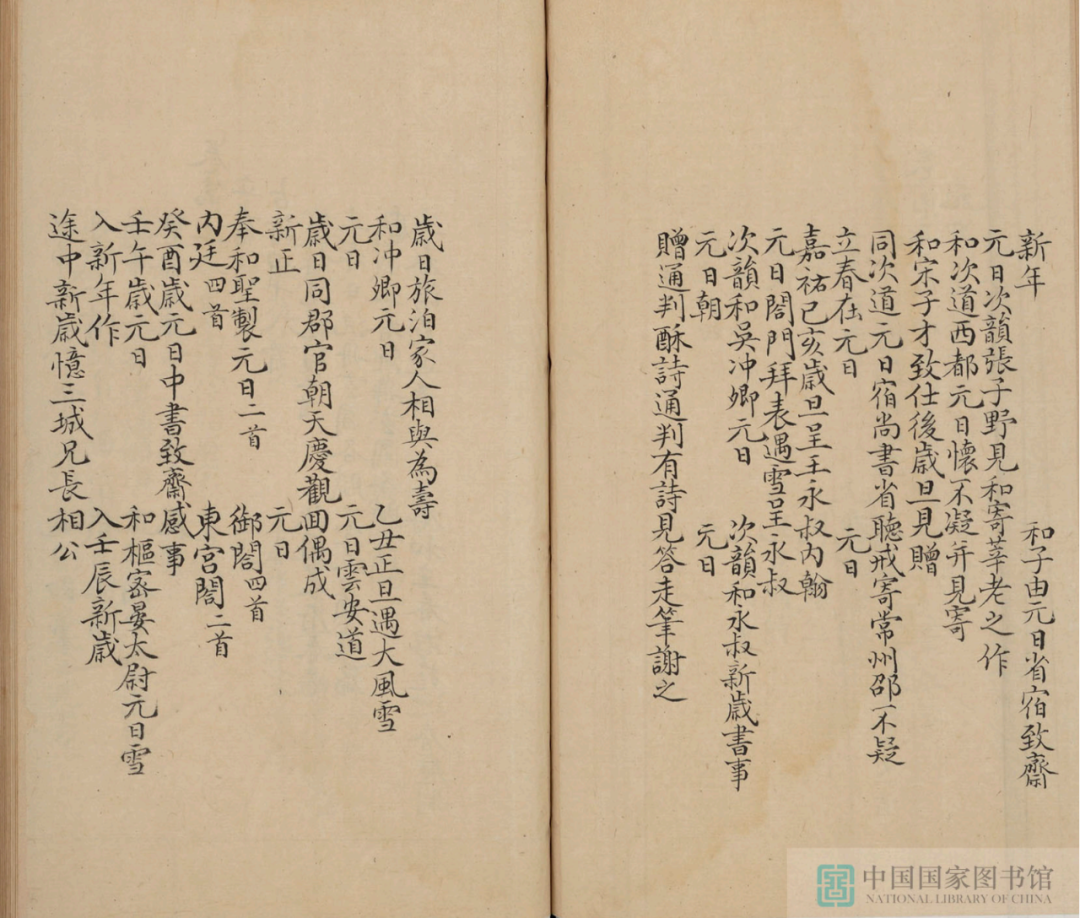 新年　和子由元日省宿致齋
元日次韻張子野見和寄莘老之作
和次道西都元日懷不凝并見寄
和宋子才致仕後歲旦見贈
同次道元日宿尚書省聽戒寄常州邵不疑
立春在元日　元日
嘉祐己亥歲旦呈王永叔內翰
元日閤門拜表遇雪呈永叔
次韻和吳冲卿元日　次韻和永叔新歲書事
元日朝　元日
贈通判酥詩通判有詩見答走筆謝之
歲日旅泊家人相與為壽
和冲卿元日　乙丑正旦遇大風雪
元日　元日雲安道
歲日同郡官朝天慶觀回偶成
新正　元日
奉和聖製元日二首　御閤四首
內廷四首　東宮閤二首
癸酉歲元日中書致齋感事
壬午歲元日　和樞密晏太尉元日雪
入新年作　入壬辰新歲
途中新歲憶三城兄長相公
中国国家图书馆
NATIONAL LIBRARY OF CHINA